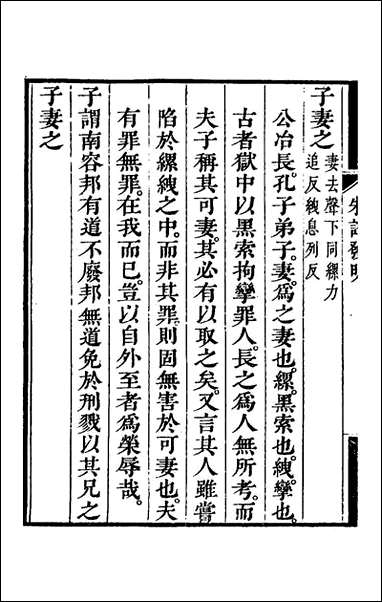 朱註發明
子妻之妻去聲下同縲力
追反絏息列反
公冶長孔子弟子妻爲之妻也縲黑索也絏攣也
古者獄中以黑索拘攣罪人長之爲人無所考而
夫子稱其可妻其必有以取之矣又言其人雖嘗
陷於縲絏之中而非其罪則固無害於可妻也夫
有罪無罪在我而已豈以自外至者爲榮辱哉
子謂南容邦有道不廢邦無道免於刑戮以其兄之
子妻之